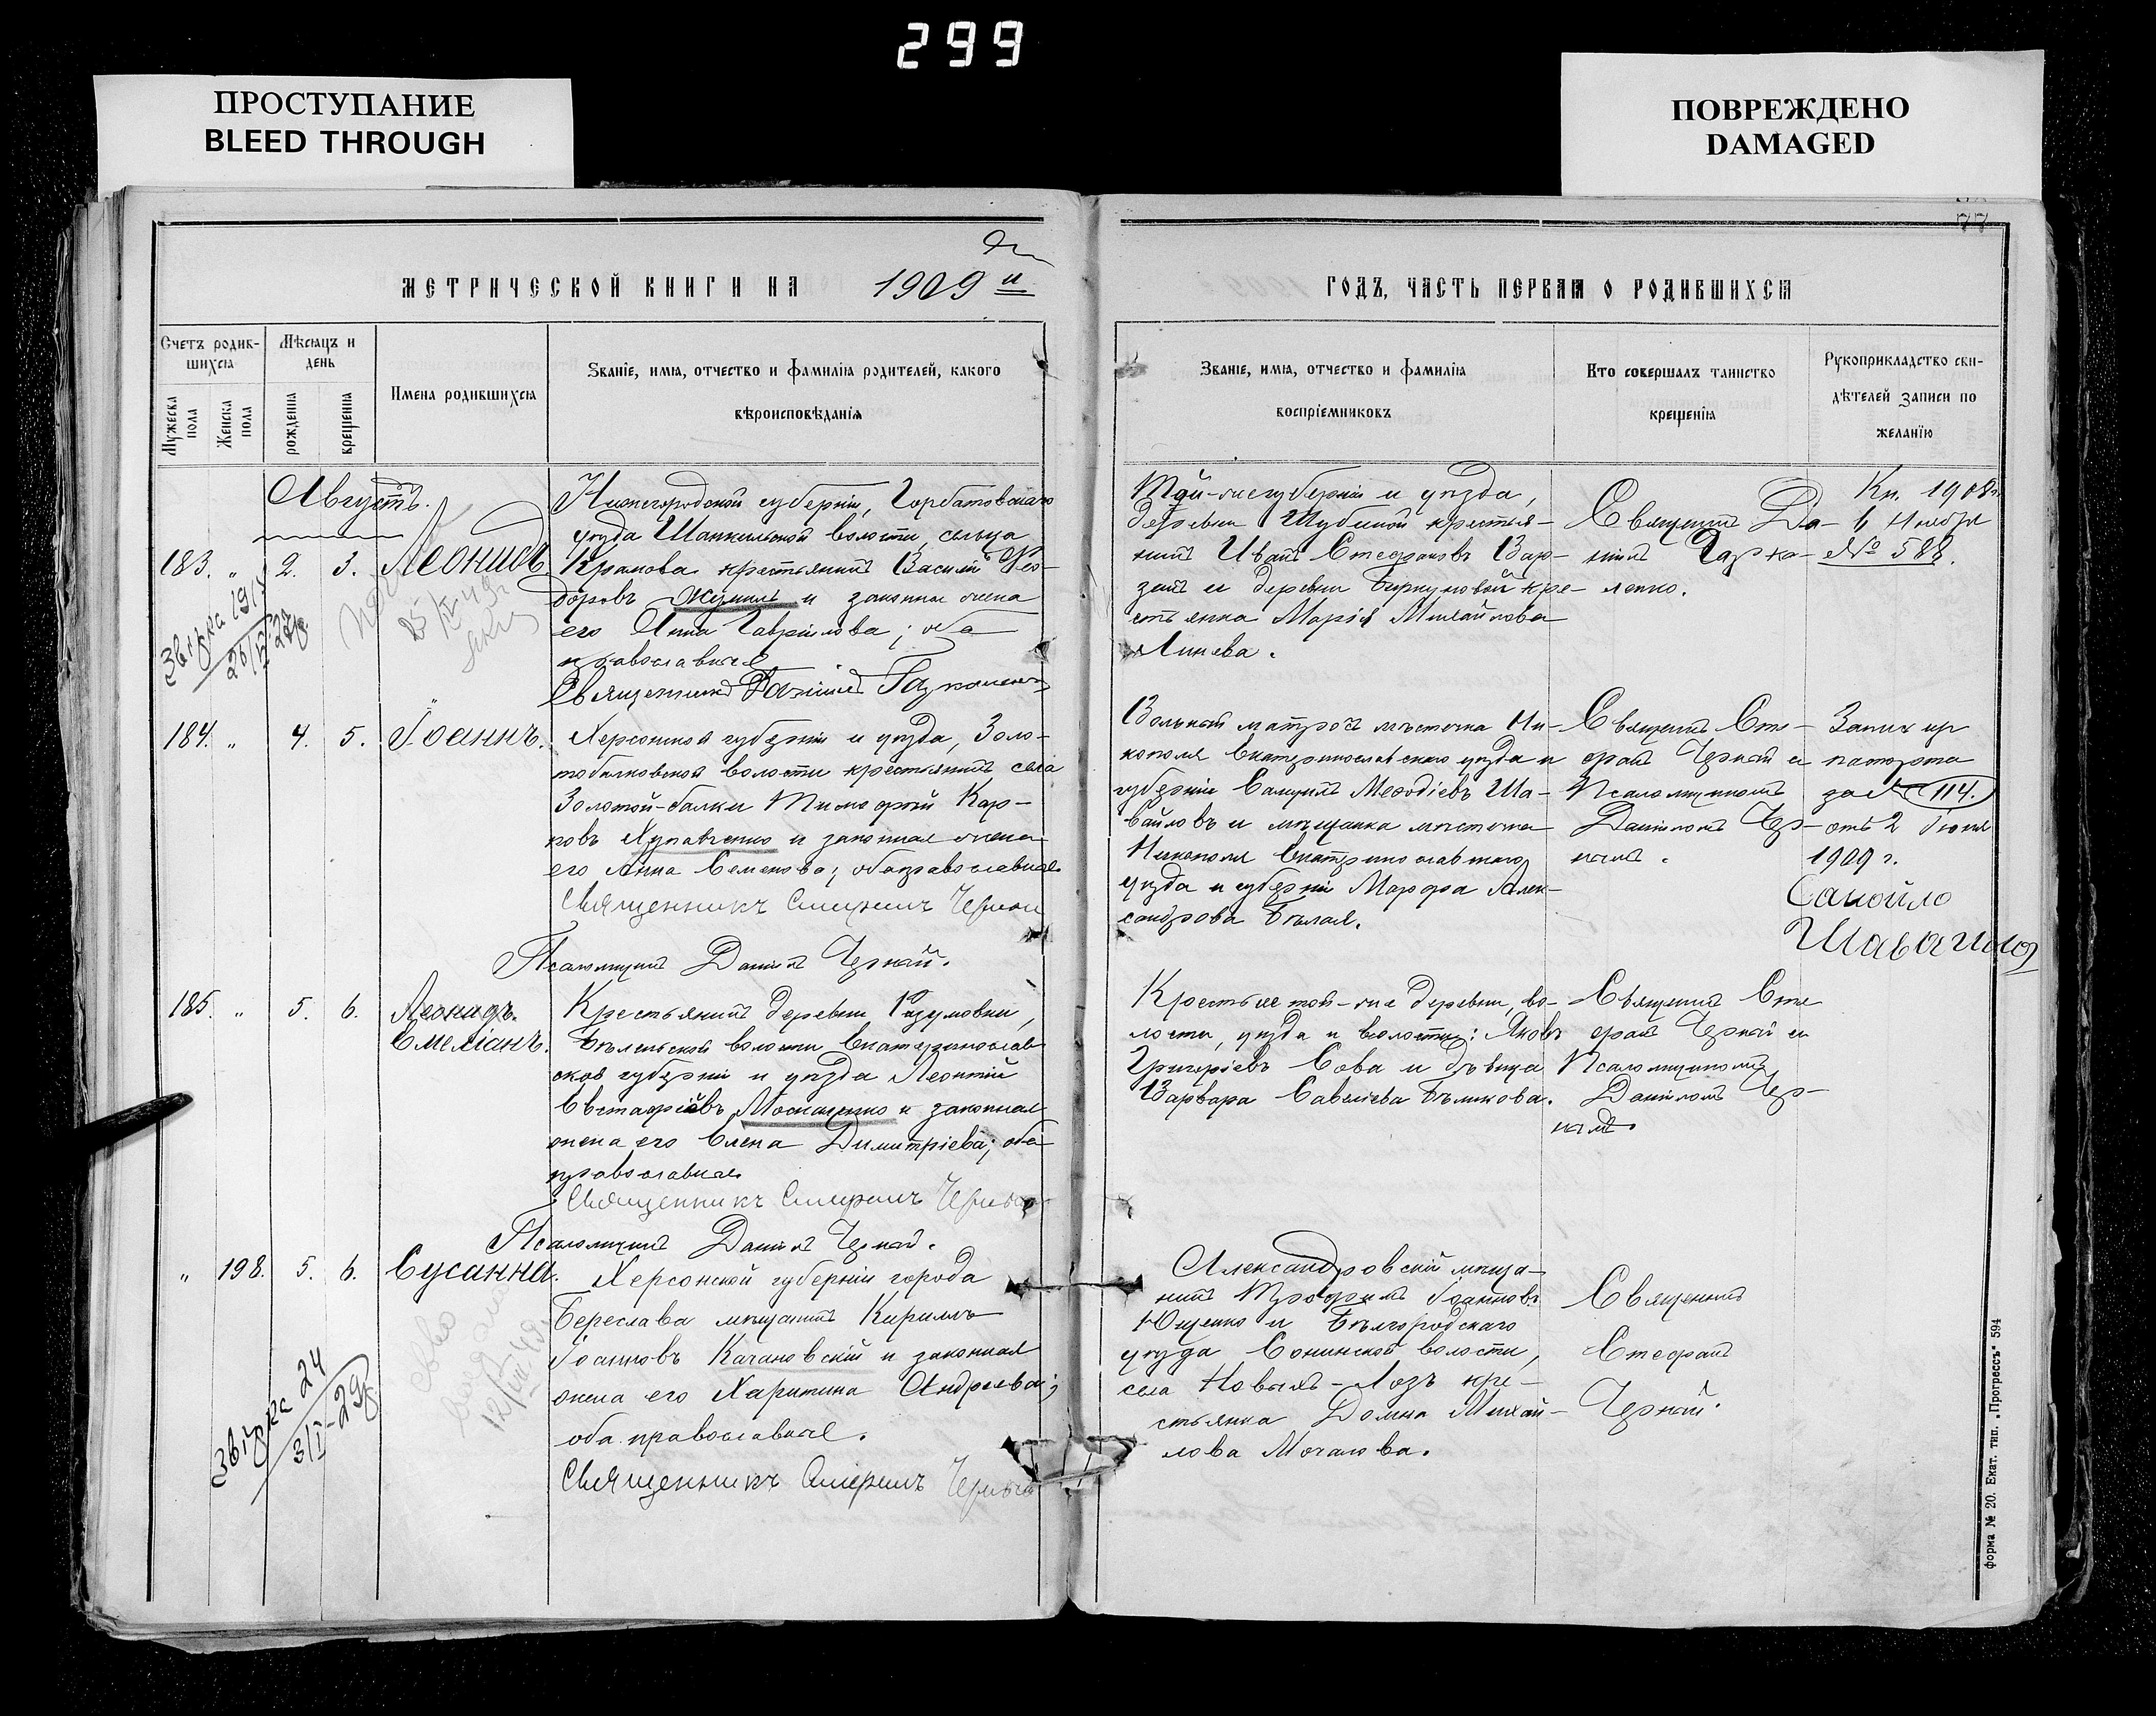 299
ПРОСТУПАНИЕ
BLEED THROUGH
ПОВРЕЖДЕНО
DAMAGED
77
МЕТРИЧЕСКОЙ КНИГИ НА 1909 й
ГОДЪ, ЧАСТЬ ПЕРВАЯ О РОДИВШИХСЯ
Счетъ родив-
шихся
Мужеска пола
Женска пола
Мѣсяцъ и день
рожденія
крещенія
Имена родившихся
Званіе, имя, отчество и фамилія родителей, какого
вѣроисповѣданія
Званіе, имя, отчество и фамилія
воспріемниковъ
Кто совершалъ таинство
крещенія
Рукоприкладство сви-
дѣтелей записи по
желанію
Августъ.
183. " 2. 3. Леонидъ
Нижегородской губерніи, Горбатовскаго
уѣзда волости, сельца
крестьянинъ Василій Ѳео-
доровъ и законная жена
его Анна Гаврилова; оба
православные
Священникъ Даніилъ
Той-же губерніи и уѣзда,
деревни Шубиной крестья-
нинъ Иванъ Стефановъ Вар-
и деревни кре-
стьянка Марія Михайлова
Линева.
Священникъ Да-
ніилъ
Кн. 1908 г.
6 Ноября
№ 588.
Звірка 1914
184. " 4. 5. Іоаннъ.
Херсонской губерніи и уѣзда, Золо-
тобалковской волости крестьянинъ села
Золотой-балки Тимофей Кар-
повъ и законная жена
его Анна Семенова; оба православные.
Священникъ Стефанъ Черный
Псаломщикъ Даніилъ Черный.
Вольный матросъ мѣстечка Ни-
кополя Екатеринославскаго уѣзда и
губерніи Самуилъ Меѳодіевъ Ша-
вайловъ и мѣщанка мѣстечка
Никополя Екатеринославскаго
уѣзда и губерніи Марфа Алек-
сандрова Бѣлая.
Священникъ Сте-
фанъ Черный и
Псаломщикъ
Даніилъ Чер-
ный.
паспорта
за № 114.
отъ 2 Іюня
1909 г.
Самойло
185. " 5. 6. Леонидъ.
Емеліанъ.
Крестьянинъ деревни Разумовки,
Бѣленьской волости Екатеринослав
ской губерніи и уѣзда Леонтій
Евстафіевъ и законная
жена его Елена Димитріева; оба
православные
Священникъ Стефанъ Черный
Псаломщикъ Даніилъ Черный.
Крестьяне той-же деревни, во-
лости, уѣзда и волости: Яковъ
Григоріевъ Сова и дѣвица
Варвара Савельева Бѣликова.
Священникъ Сте
фанъ Черный и
Псаломщикъ
Даніилъ Чер-
ный.
" 198. 5. 6. Сусанна.
Херсонской губерніи города
Береслава мѣщанинъ Кириллъ
Іоанновъ Качановскій и законная
жена его Харитина Андреева;
оба православные.
Священникъ Стефанъ Черный
Александровскій мѣща-
нинъ Трофимъ Іоанновъ
Ющенко и Бѣлгородскаго
уѣзда волости,
села Новыхъ-Лозъ кре-
стьянка Домна Михай-
лова Мочалова.
Священникъ
Стефанъ
Черный.
Звірка 24
3/I-29
Форма № 20. Екат. тип. „Прогрессъ“ 594